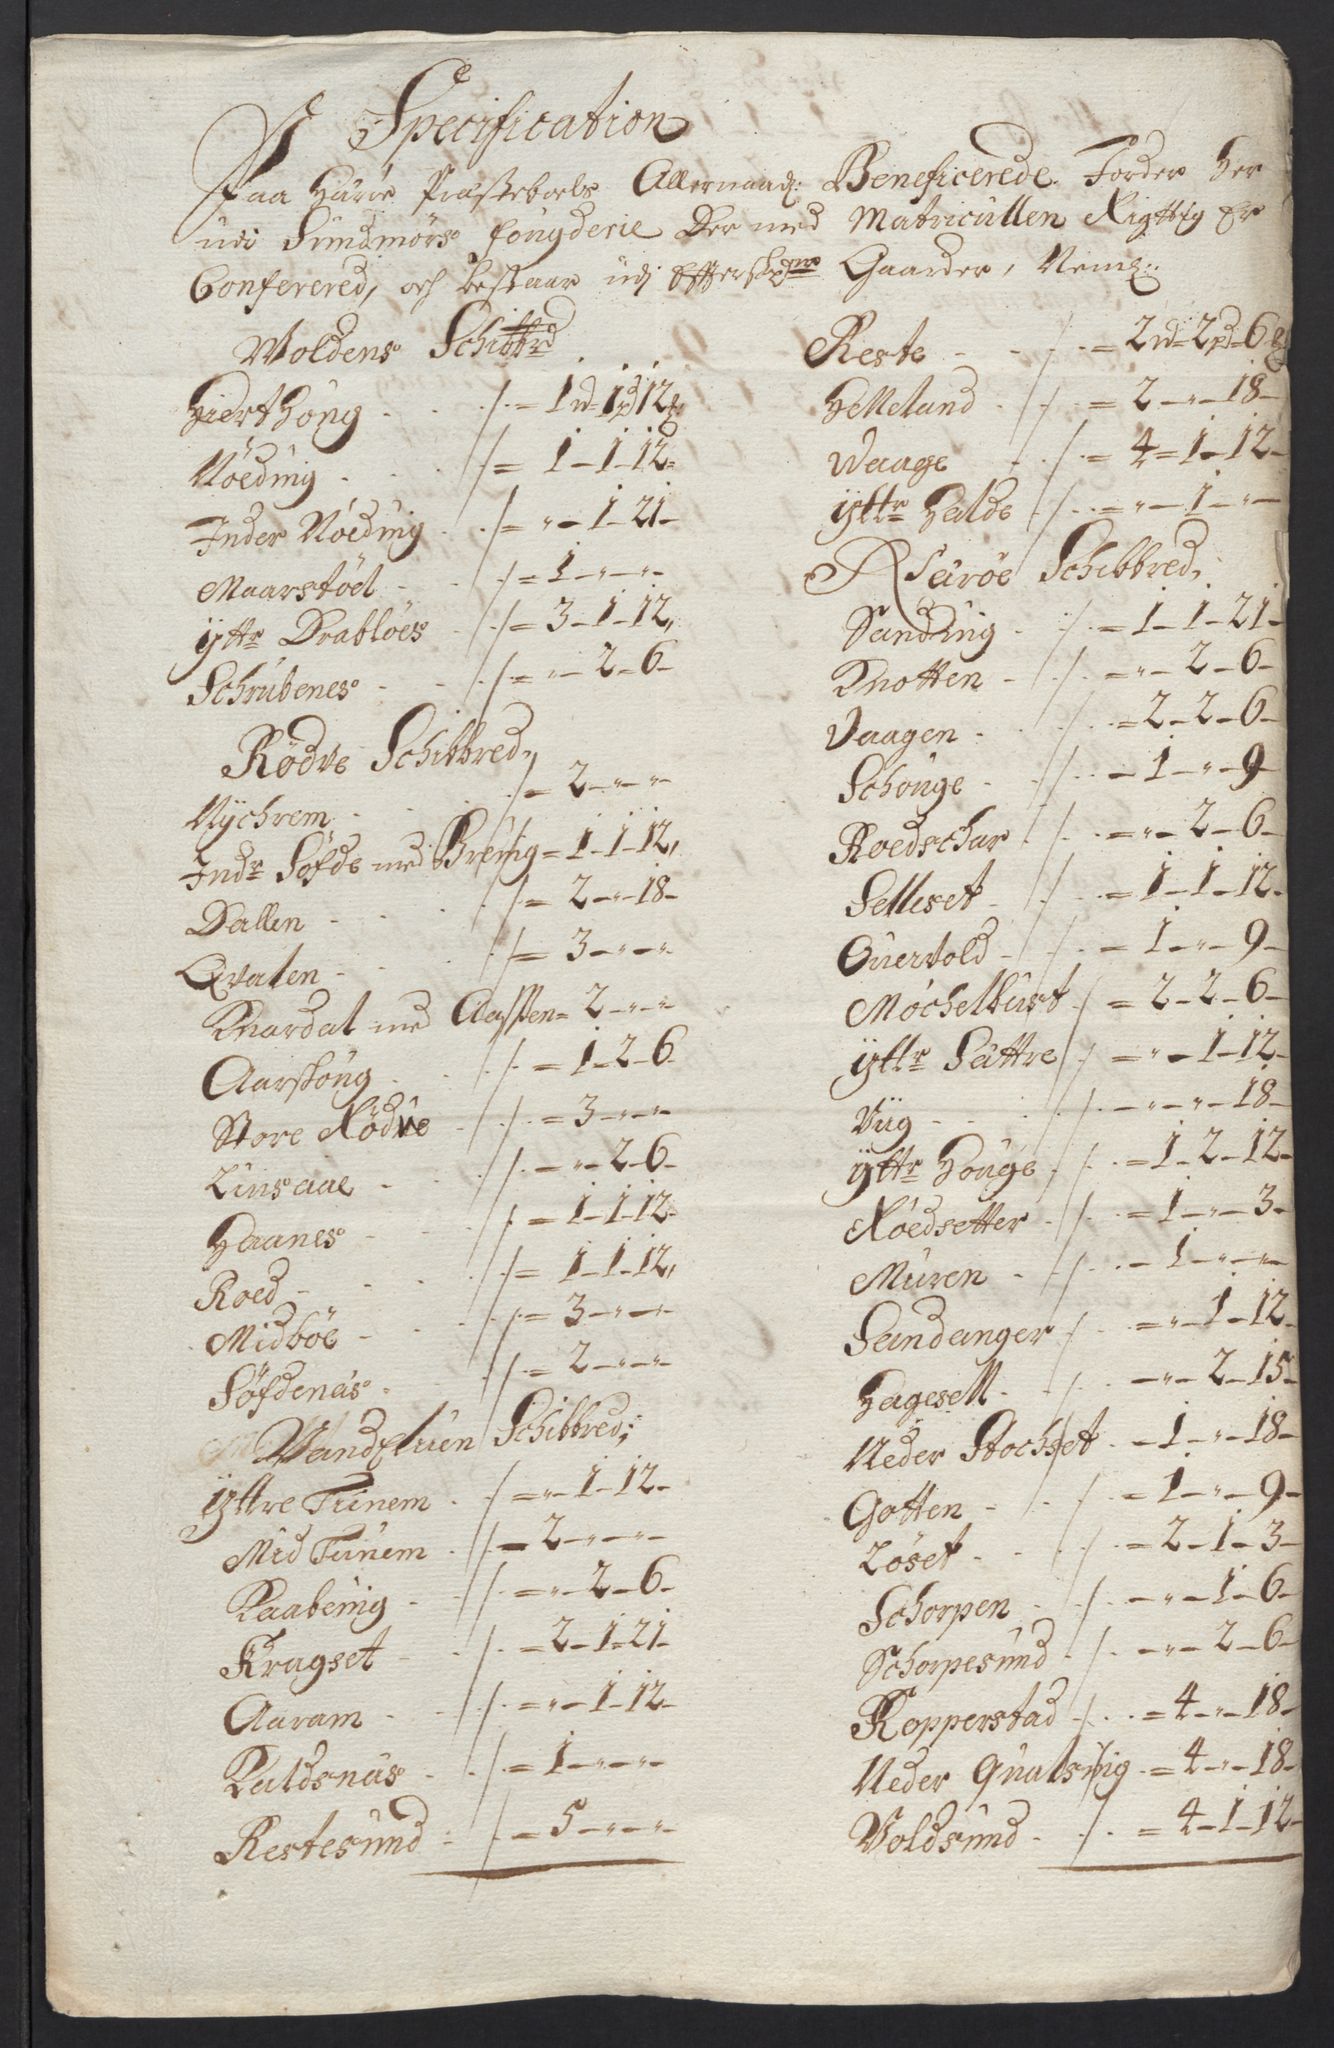 Specification
Paa Haröe Præsteboels Allernaad: Beneficerede Jorder her
udi Sundmörs fougderie Der med Matricullen Rigttig Er
Conferered, och bestaar udj Effterskr: Gaarder, Neml:
Woldens Schibbrd
Hierthoug . . . /. = 1 W= 1 pd 12
Nöeding . . . /= 1 - 1 - 12 =
Inder Nöeding . /= " - 1 - 21 -
Maarstöel - . . /= 1 - " - " -
Ÿttr Drabløes . /= 3 - 1 - 12,
Schrubenes - - /= " - 2 - 6 -
Rödve Schibbred,
Nÿchrem . . . /= 2 - " - "
Indr Söfde med Breuig = 1 - 1 - 12,
Dallen - . . . /= 2 - " - 18 -
Qvalen - . . /= 3 - " - "
Knardal med Aassen = 2 - " - "
Aarskoug . . . /. = 1 - 2 - 6
Store Rödve - . /. = 3 - " - "
Linsaae - . . /. = " - 2 - 6 -
Haanes - . . /. = 1 - 1 - 12
Roed - . . . /. = 1 - 1 - 12,
Midböe - . . /. = 3 - " - "
Söfdenæs - . . /. = 2 - " - "
Wandeluen Schibbred;
Ÿttre Tunem . /. = " - 1 - 12 -
Mid Tunem . /. = 2 - " - " -
Kaabeuig - . /. = " - 2 - 6 -
Kragset - . . /. = 2 - 1 - 21 -
Aaram - . . /. = " - 1 - 12 -
Kaldsnæs - . /. = 1 - " - " -
Kestesund - /. = 5 - " - "
Reste - - . /. = 2 W= 2 pd - 6
Helleland . . /. = 2 - " - 18 -
Waage - . /. = 4 = 1 - 12 -
Ÿttr Halde /. . = " - 1 - " -
Schibbred,
Sanduig . /. = 1 - 1 - 21 -
Knotten - . /. . = " - 2 - 6 -
Vaagen - . . /. = 2 - 2 - 6 -
Schouge - . /. . = 1 - " - 9 -
Roedschar . /. . = " - 2 - 6 -
Selleset - . /. = 1 - 1 - 12 -
Ouervold - . /. = 1 - " - 9 -
Möchelbust /. = 2 - 2 - 6 -
Ÿttr Sættre /. = " - 1 - 12 -
Viig - . . . /. - " - " - 18 -
Ÿttr Houge . /. . = 1 - 2 - 12 -
Röedsetter . /. . = 1 - " - 3 -
Muren - . /. . - 1 - " - "
Sandanger /. . = " - 1 - 12 -
Hagesell . /. . = " - 2 - 15 -
Neder Stochset . - 1 - " - 18 -
Gotten - . /. = 1 - " - 9 -
Löset - . . /. = 2 - 1 - 3 -
Schorpen . /. . - " - 1 - 6 -
Schorpesund . /. - " - 2 - 6 -
Kopperstad - /. . = 4 - " - 18 -
Neder Qualsuig . = 4 - " - 18 -
Voldsund . . /. = 4 - 1 - 12 -